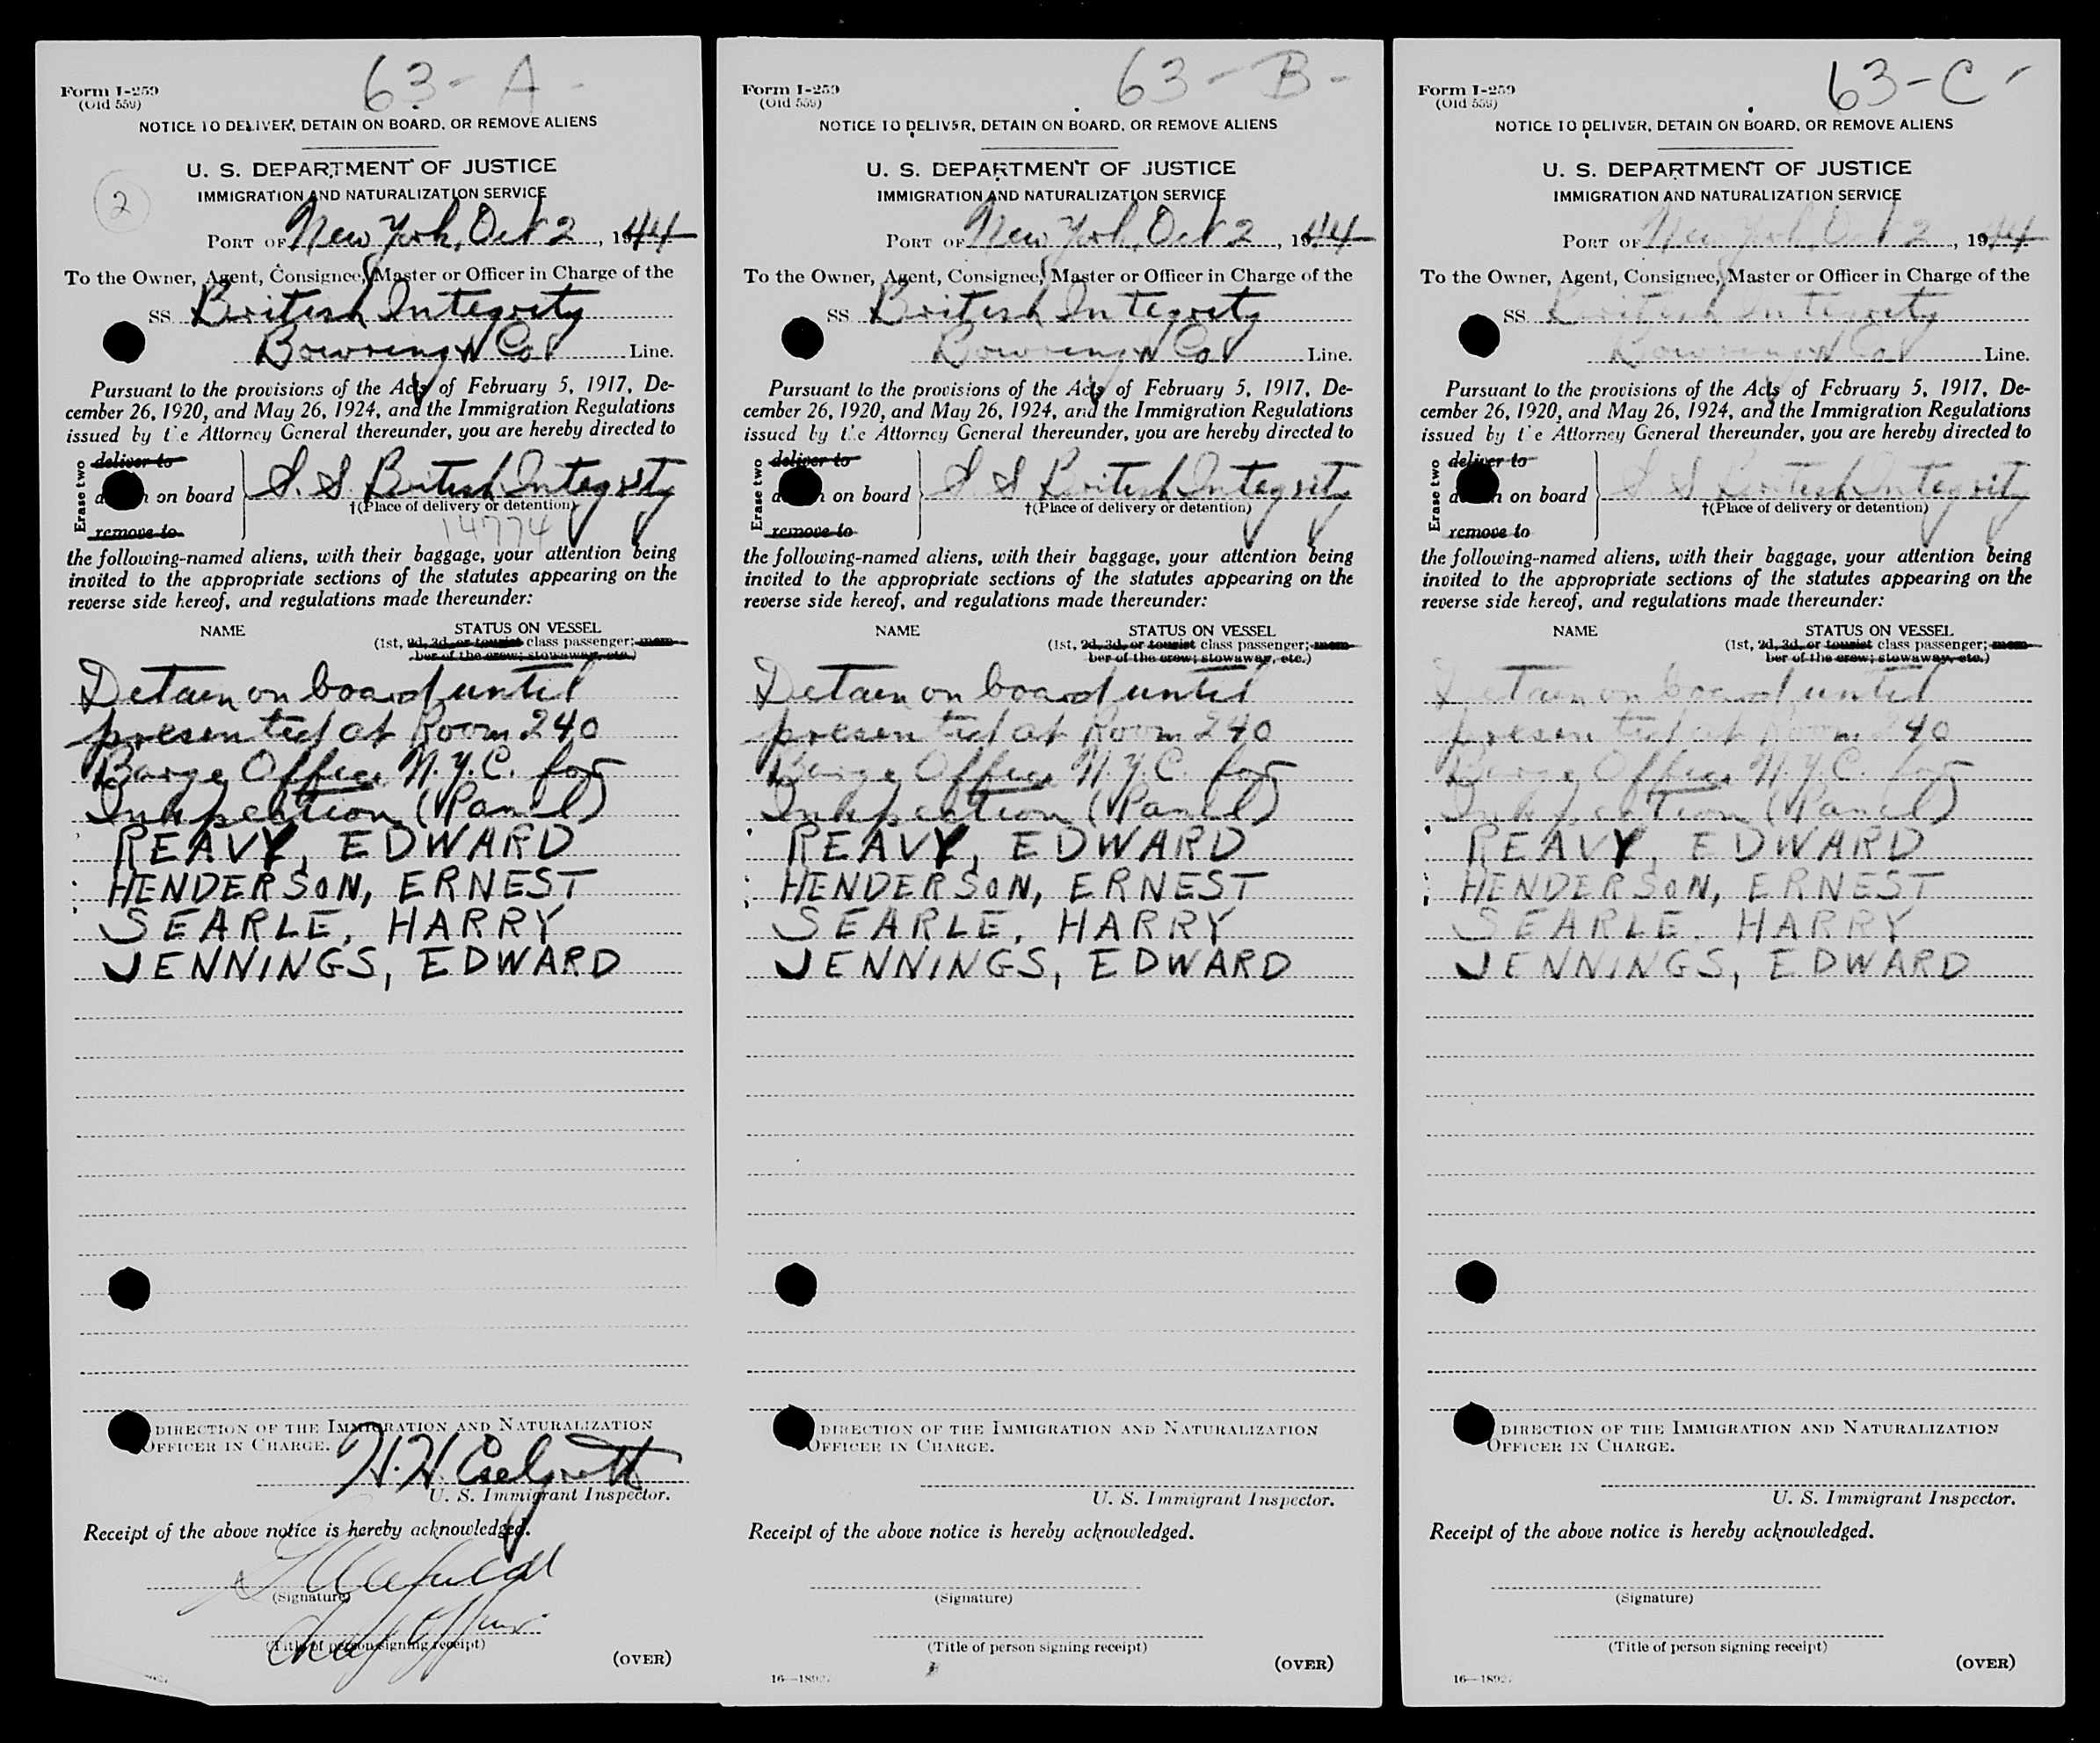 63-A-
Form I-259
(Old 559)
NOTICE TO DELIVER, DETAIN ON BOARD, OR REMOVE ALIENS
U. S. DEPARTMENT OF JUSTICE
IMMIGRATION AND NATURALIZATION SERVICE
2
PORT OF New York, Oct 2, 1944
To the Owner, Agent, Consignee, Master or Officer in Charge of the
SS British Integrity
Bowring & Co Line.
Pursuant to the provisions of the Acts of February 5, 1917, De-
cember 26, 1920, and May 26, 1924, and the Immigration Regulations
issued by the Attorney General thereunder, you are hereby directed to
Erase two
deliver to
on board
remove to
S. S. British Integrity
†(Place of delivery or detention)
14774
the following-named aliens, with their baggage, your attention being
invited to the appropriate sections of the statutes appearing on the
reverse side hereof, and regulations made thereunder:
NAME STATUS ON VESSEL
(1st, 2d, 3d, or tourist class passenger; mem-
ber of the crew; stowaway, etc.)
Detain on board until
presented at Room 240
Barge Office N.Y.C. for
Inspection (Panel)
REAVY, EDWARD
HENDERSON, ERNEST
SEARLE, HARRY
JENNINGS, EDWARD
DIRECTION OF THE IMMIGRATION AND NATURALIZATION
OFFICER IN CHARGE.
H. H.
U. S. Immigrant Inspector.
Receipt of the above notice is hereby acknowledged.
(Signature)
Chief Officer
(Title of person signing receipt)
(OVER)
63-B-
Form I-259
(Old 559)
NOTICE TO DELIVER, DETAIN ON BOARD, OR REMOVE ALIENS
U. S. DEPARTMENT OF JUSTICE
IMMIGRATION AND NATURALIZATION SERVICE
PORT OF New York, Oct 2, 1944
To the Owner, Agent, Consignee, Master or Officer in Charge of the
SS British Integrity
Bowring & Co Line.
Pursuant to the provisions of the Acts of February 5, 1917, De-
cember 26, 1920, and May 26, 1924, and the Immigration Regulations
issued by the Attorney General thereunder, you are hereby directed to
Erase two
deliver to
on board
remove to
S S British Integrity
†(Place of delivery or detention)
the following-named aliens, with their baggage, your attention being
invited to the appropriate sections of the statutes appearing on the
reverse side hereof, and regulations made thereunder:
NAME STATUS ON VESSEL
(1st, 2d, 3d, or tourist class passenger; mem-
ber of the crew; stowaway, etc.)
Detain on board until
presented at Room 240
Barge Office N.Y.C. for
Inspection (Panel)
REAVY, EDWARD
HENDERSON, ERNEST
SEARLE, HARRY
JENNINGS, EDWARD
DIRECTION OF THE IMMIGRATION AND NATURALIZATION
OFFICER IN CHARGE.
U. S. Immigrant Inspector.
Receipt of the above notice is hereby acknowledged.
(Signature)
(Title of person signing receipt)
(OVER)
63-C-
Form I-259
(Old 559)
NOTICE TO DELIVER, DETAIN ON BOARD, OR REMOVE ALIENS
U. S. DEPARTMENT OF JUSTICE
IMMIGRATION AND NATURALIZATION SERVICE
PORT OF New York, Oct 2, 1944
To the Owner, Agent, Consignee, Master or Officer in Charge of the
SS British Integrity
Bowring & Co Line.
Pursuant to the provisions of the Acts of February 5, 1917, De-
cember 26, 1920, and May 26, 1924, and the Immigration Regulations
issued by the Attorney General thereunder, you are hereby directed to
Erase two
deliver to
on board
remove to
S S British Integrity
†(Place of delivery or detention)
the following-named aliens, with their baggage, your attention being
invited to the appropriate sections of the statutes appearing on the
reverse side hereof, and regulations made thereunder:
NAME STATUS ON VESSEL
(1st, 2d, 3d, or tourist class passenger; mem-
ber of the crew; stowaway, etc.)
Detain on board until
presented at Room 240
Barge Office N.Y.C. for
Inspection (Panel)
REAVY, EDWARD
HENDERSON, ERNEST
SEARLE, HARRY
JENNINGS, EDWARD
DIRECTION OF THE IMMIGRATION AND NATURALIZATION
OFFICER IN CHARGE.
U. S. Immigrant Inspector.
Receipt of the above notice is hereby acknowledged.
(Signature)
(Title of person signing receipt)
(OVER)